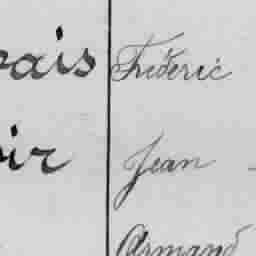 vais Fréderic
oir Jean
Armand